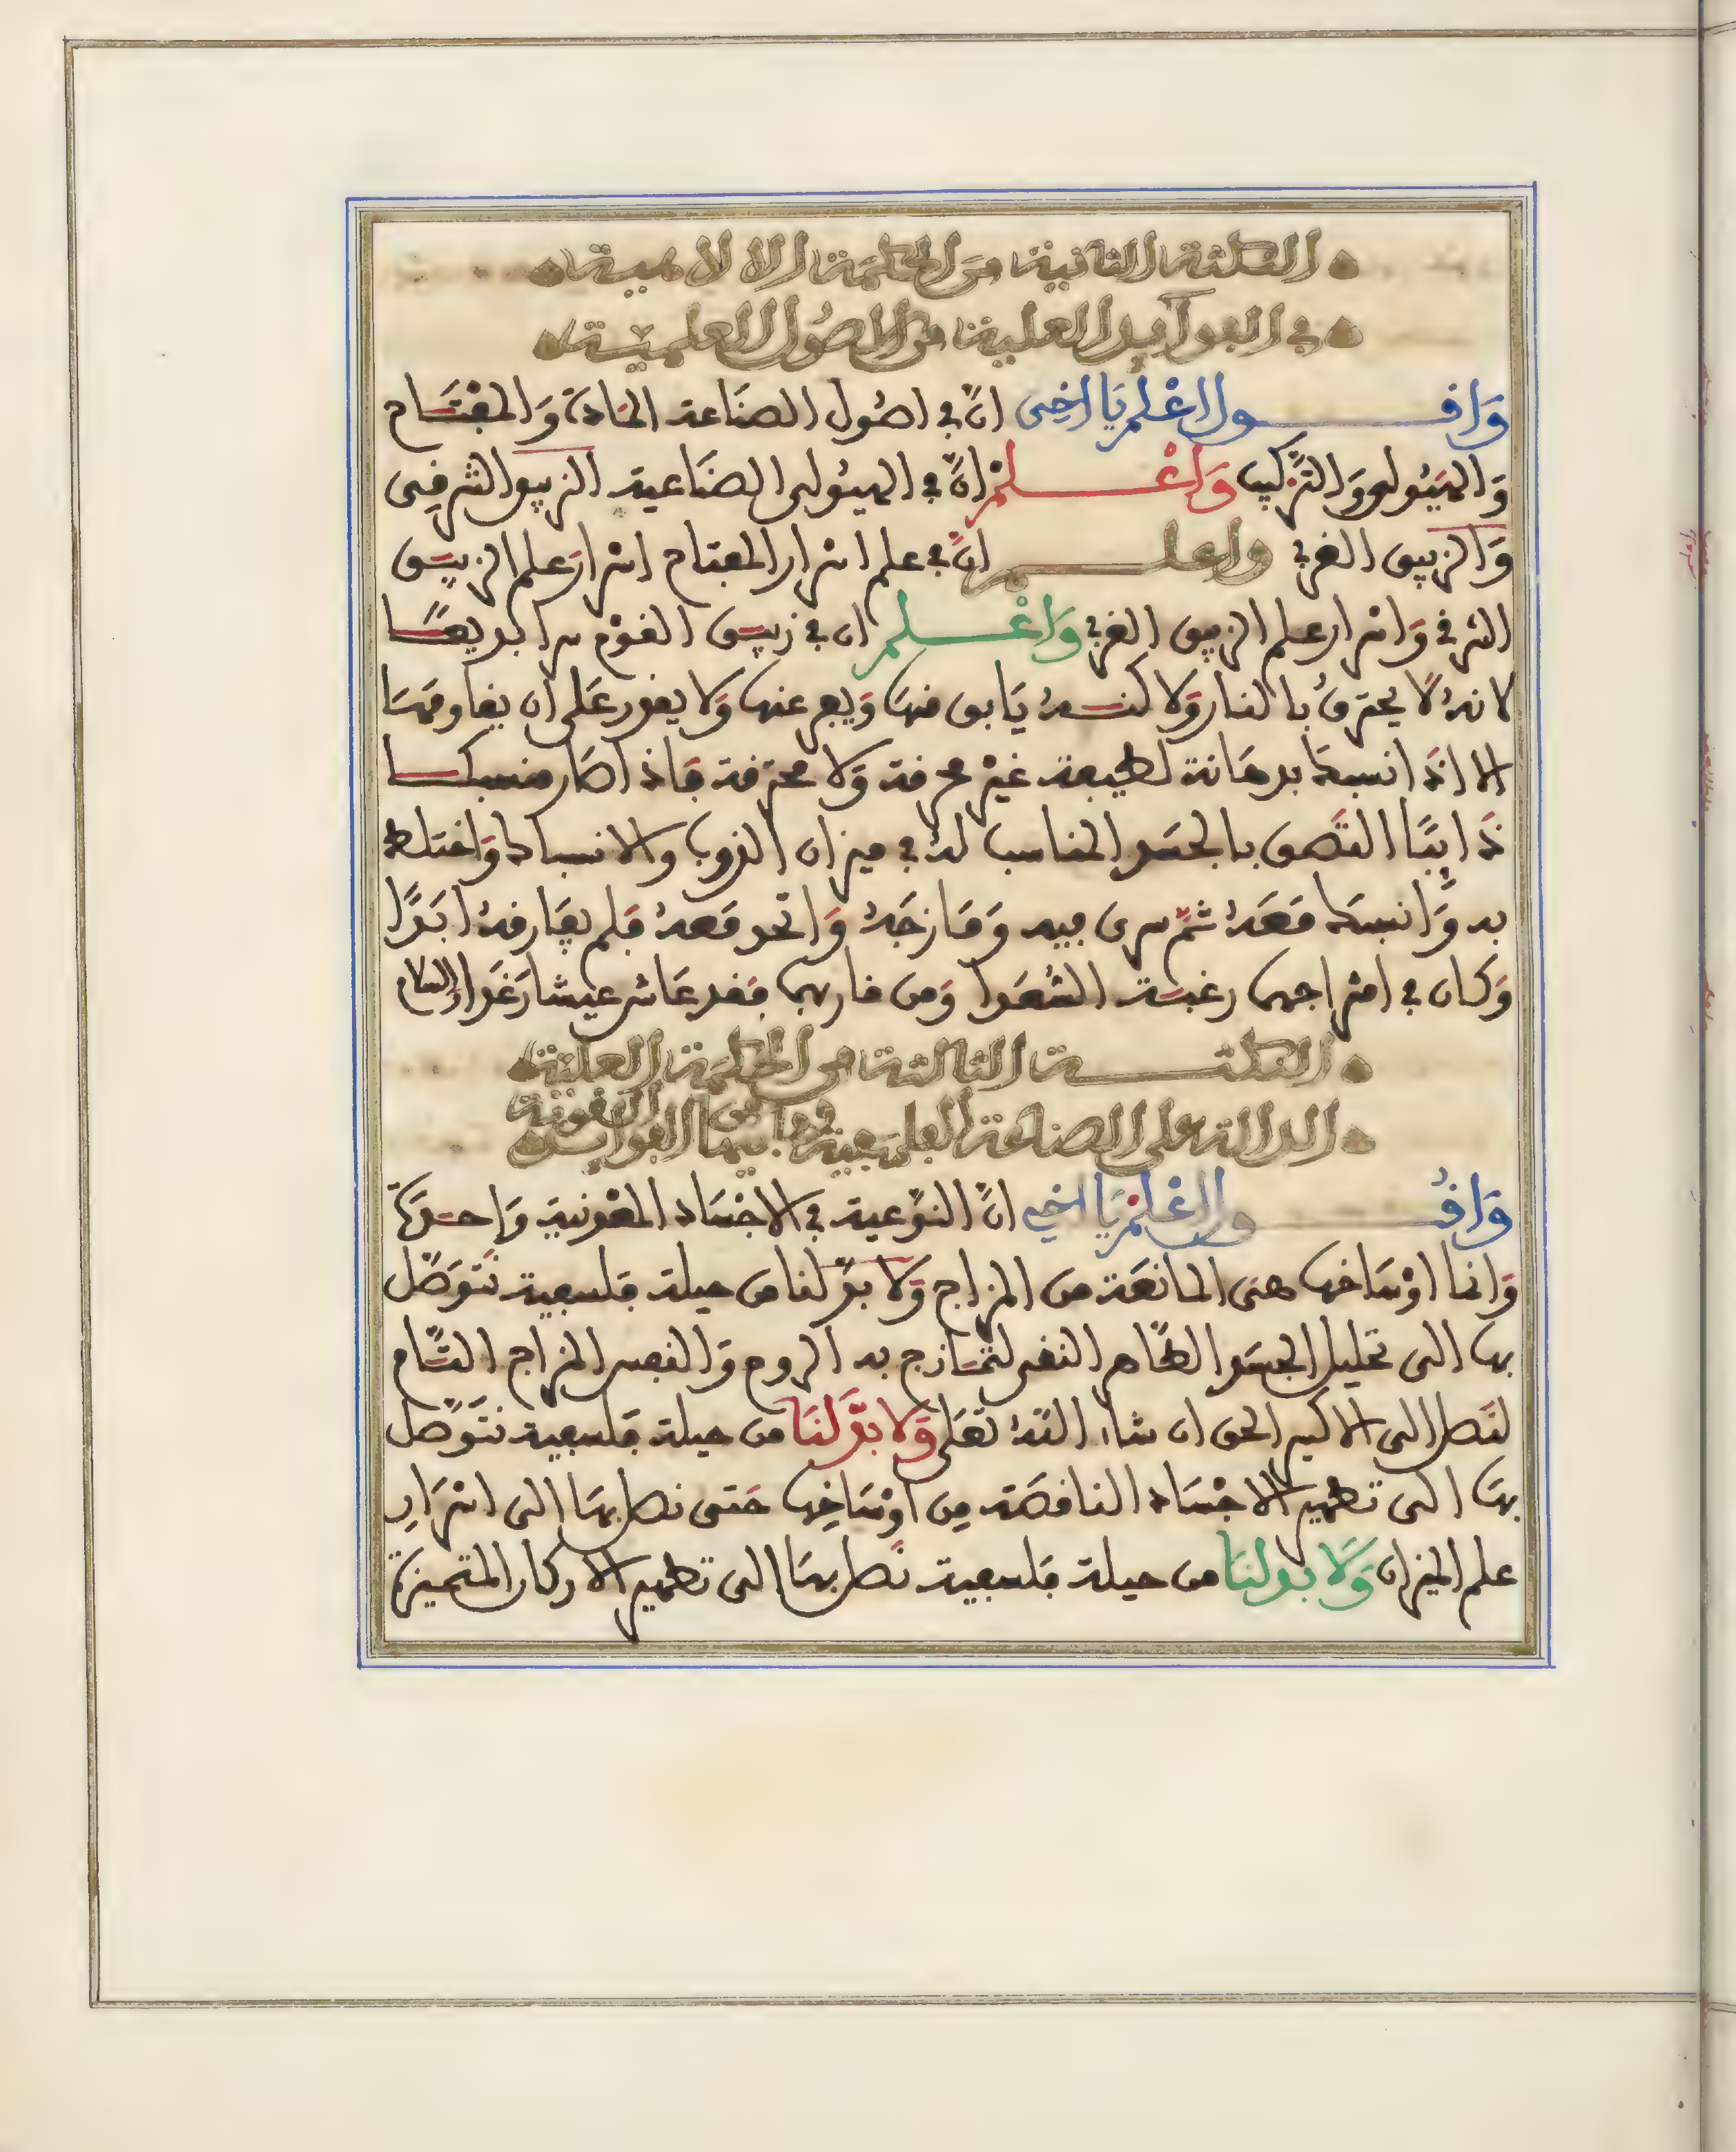 النكتة الثانية من الحكمة الالاهية
في الفوآيد العلية من الاصُول العلمية
وَاقــول اعْلم يَا اخِى انَّ في اصُول الصنَاعة المَادةَ وَالمفْتَاح
وَالهَيُولى وَالترْكيب وَاعْــلمْ انَّ في الهيُولى الصنَاعية الزيبق الشرقِى
وَالزيبق الغربي واعلــم انَّ في علم اسْرار المفتاح اسْرارَ علم الزيبَق
الشرقي وَاسْرار علم الزيبق الغربي وَاعْــلم ان في زيبَق القوْم سرا بديعًا
لانهُ لَا يحترقُ بالنار وَلاكنهُ يَابق منهَا وَيفر عنها وَلا يقدر عَلى ان يقاومهَا
الا اذَا انسبكَ بدهَانة لطبيعة غيْر محرقة وَلا محترقة فَاذا صَار منسبكـا
ذَايبًا التَصق بالجسَد المناسب لهُ في ميزان الذوب والانسباك وَاختلط
به وَانسبكَ مَعَهُ ثمَّ سرى فيه وَمَازجَهُ وَاتحد مَعهُ فَلم يفَارقهُ ابَدًا
وَكان في امتزاجهما رغبَة السُعَدا وَمن قاربهما فَقد عَاش عيشا رَغَدا والسلام
النكتــة الثالثة من الحكمة العلية
الدالة على الصناعة الفلسفية وما فيها من الفوايد القدسية
وَاقُــول اعْلمْ يَا اخي انَّ النوْعية في الاجْسَاد المعْدنية وَاحدَة
وَانما اوْسَاخها هىَ المانعَة من المزاج وَلا بدَّ لنا من حيلة فَلسفية نتَوصَّل
بها الى تحليل الجسَد الطَاهر النقى لتمَازج به الروح وَالنفس المزاج التَّام
لنَصل الى الاكسير الحق ان شاء اللهُ تعَلى وَلا بدَّ لنَا من حيلة فَلسفية نتَوصَّل
بهَا الى تطهير الاجْسَاد الناقصَة مِن اوْسَاخِها حَتى نصل بهَا الى اسْرَارِ
علم الميزان وَلَا بد لنَا من حيلة فَلسفية نَصل بهَا الى تطهير الاركان المتحيزَة